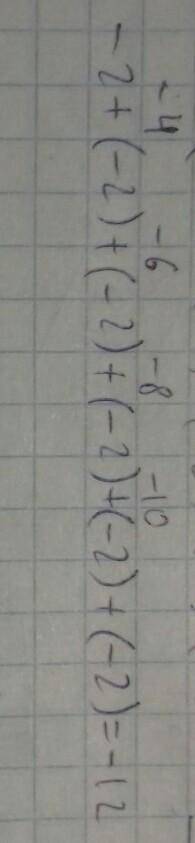 -4 -6 -8 -10
-2+(-2)+(-2)+(-2)+(-2)+(-2)=-12